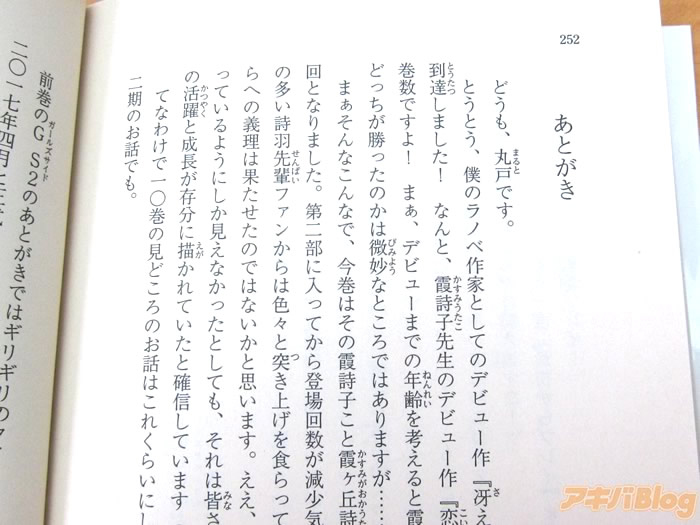 252
あとがき
どうも、丸戸です。
とうとう、僕のラノベ作家としてのデビュー作『冴え
到達しました！ なんと、霞詩子先生のデビュー作『恋
巻数ですよ！ まぁ、デビューまでの年齢を考えると霞
どっちが勝ったのかは微妙なところではありますが……
まぁそんなこんなで、今巻はその霞詩子こと霞ヶ丘詩
回となりました。第二部に入ってから登場回数が減少気
の多い詩羽先輩ファンからは色々と突き上げを食らって
らへの義理は果たせたのではないかと思います。ええ、
っているようにしか見えなかったとしても、それは皆さ
の活躍と成長が存分に描かれていたと確信しています
てなわけで一〇巻の見どころのお話はこれくらいにし
二期のお話でも。
前巻のGS2のあとがきではギリギリの
二〇一七年四月
アキバBlog